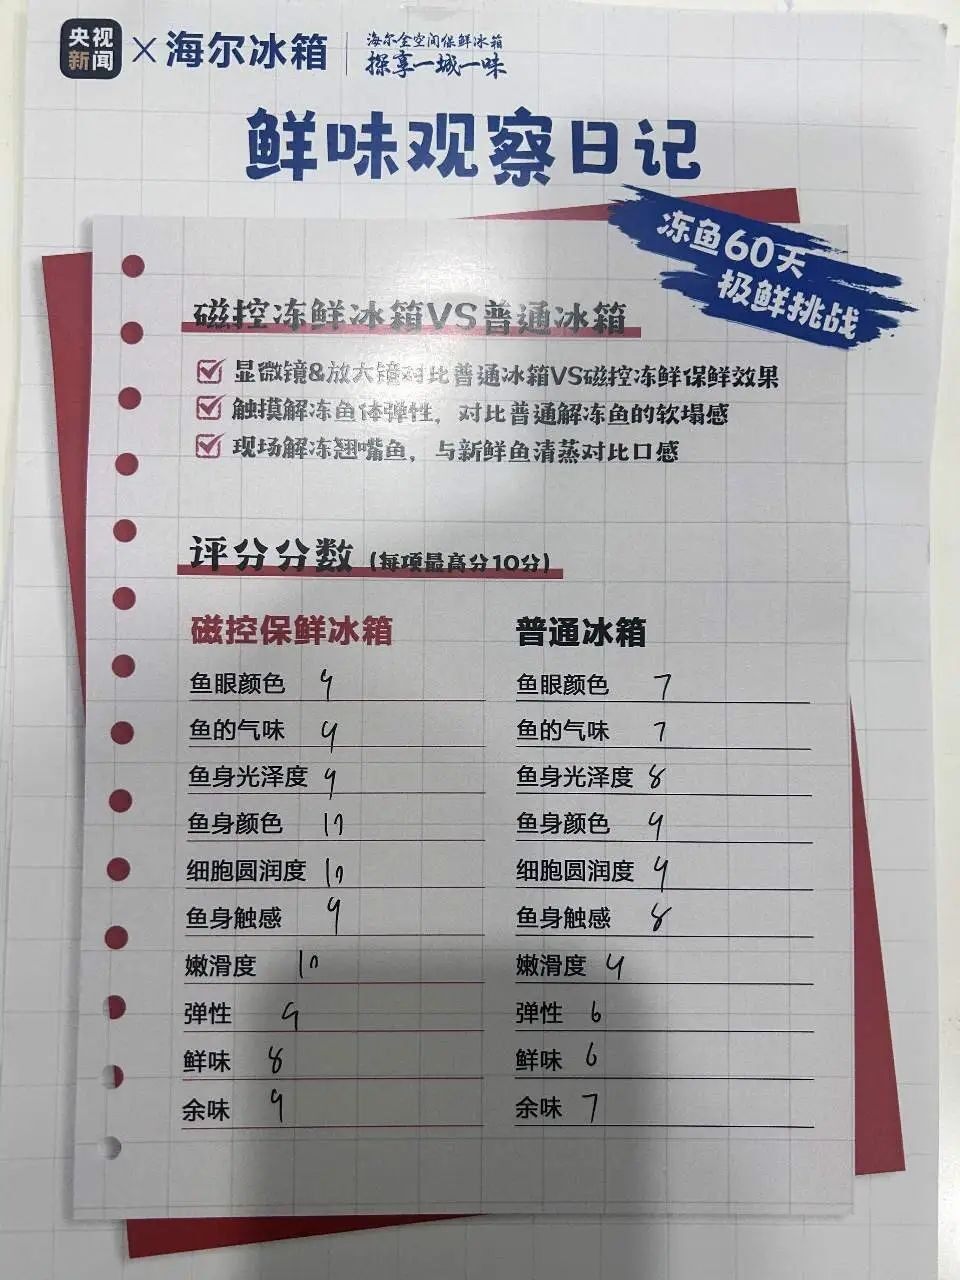 央视新闻 × 海尔冰箱 海尔全空间保鲜冰箱
探享一城一味
鲜味观察日记
冻鱼60天
极鲜挑战
磁控冻鲜冰箱VS普通冰箱
显微镜&放大镜对比普通冰箱VS磁控冻鲜保鲜效果
触摸解冻鱼体弹性，对比普通解冻鱼的软塌感
现场解冻翘嘴鱼，与新鲜鱼清蒸对比口感
评分分数（每项最高分10分）
磁控保鲜冰箱
鱼眼颜色 9
鱼的气味 9
鱼身光泽度 9
鱼身颜色 10
细胞圆润度 10
鱼身触感 9
嫩滑度 10
弹性 9
鲜味 8
余味 9
普通冰箱
鱼眼颜色 7
鱼的气味 7
鱼身光泽度 8
鱼身颜色 9
细胞圆润度 9
鱼身触感 8
嫩滑度 9
弹性 6
鲜味 6
余味 7